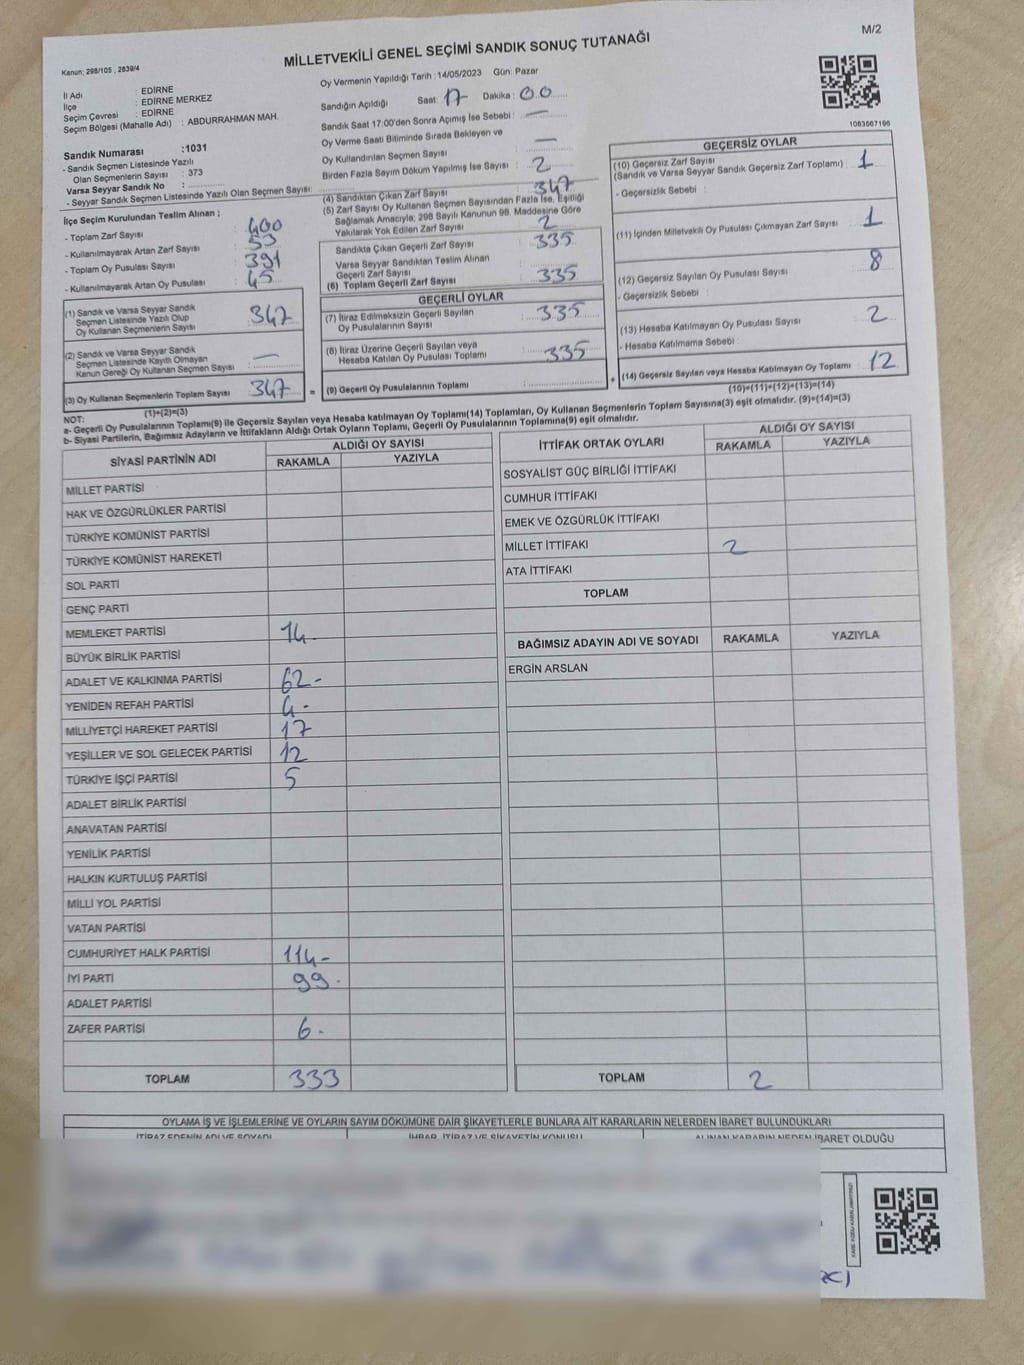 M/2
MİLLETVEKİLİ GENEL SEÇİMİ SANDIK SONUÇ TUTANAĞI
Kanun; 298/105 , 2839/4
İl Adı : EDİRNE
İlçe : EDİRNE MERKEZ
Seçim Çevresi : EDİRNE
Seçim Bölgesi (Mahalle Adı) : ABDURRAHMAN MAH.
Sandık Numarası :1031
- Sandık Seçmen Listesinde Yazılı
Olan Seçmenlerin Sayısı : 373
Varsa Seyyar Sandık No :
- Seyyar Sandık Seçmen Listesinde Yazılı Olan Seçmen Sayısı:
Oy Vermenin Yapıldığı Tarih :14/05/2023 Gün: Pazar
Sandığın Açıldığı Saat: 17 Dakika : 00
Sandık Saat 17:00'den Sonra Açımış İse Sebebi : —
Oy Verme Saati Bitiminde Sırada Bekleyen ve
Oy Kullandırılan Seçmen Sayısı : —
Birden Fazla Sayım Döküm Yapılmış İse Sayısı : 2
1063567196
İlçe Seçim Kurulundan Teslim Alınan ;
- Toplam Zarf Sayısı : 400
- Kullanılmayarak Artan Zarf Sayısı : 53
- Toplam Oy Pusulası Sayısı : 391
- Kullanılmayarak Artan Oy Pusulası : 45
(1) Sandık ve Varsa Seyyar Sandık
Seçmen Listesinde Yazılı Olup
Oy Kullanan Seçmenlerin Sayısı : 347
(2) Sandık ve Varsa Seyyar Sandık
Seçmen Listesinde Kayıtlı Olmayan
Kanun Gereği Oy Kullanan Seçmen Sayısı : —
(3) Oy Kullanan Seçmenlerin Toplam Sayısı : 347
(1)+(2)=(3)
(4) Sandıktan Çıkan Zarf Sayısı : 347
(5) Zarf Sayısı Oy Kullanan Seçmen Sayısından Fazla İse, Eşitliği
Sağlamak Amacıyla; 298 Sayılı Kanunun 98. Maddesine Göre
Yakılarak Yok Edilen Zarf Sayısı : 2
Sandıkta Çıkan Geçerli Zarf Sayısı : 335
Varsa Seyyar Sandıktan Teslim Alınan
Geçerli Zarf Sayısı :
(6) Toplam Geçerli Zarf Sayısı : 335
GEÇERLİ OYLAR
(7) İtiraz Edilmeksizin Geçerli Sayılan
Oy Pusulalarının Sayısı : 335
(8) İtiraz Üzerine Geçerli Sayılan veya
Hesaba Katılan Oy Pusulası Toplamı : 335
= (9) Geçerli Oy Pusulalarının Toplamı :
GEÇERSİZ OYLAR
(10) Geçersiz Zarf Sayısı : 1
(Sandık ve Varsa Seyyar Sandık Geçersiz Zarf Toplamı)
- Geçersizlik Sebebi :
(11) İçinden Milletvekili Oy Pusulası Çıkmayan Zarf Sayısı : 1
(12) Geçersiz Sayılan Oy Pusulası Sayısı : 8
- Geçersizlik Sebebi :
(13) Hesaba Katılmayan Oy Pusulası Sayısı : 2
- Hesaba Katılmama Sebebi :
+ (14) Geçersiz Sayılan veya Hesaba Katılmayan Oy Toplamı : 12
(10)+(11)+(12)+(13)=(14)
NOT:
a- Geçerli Oy Pusulalarının Toplamı(9) ile Geçersiz Sayılan veya Hesaba katılmayan Oy Toplamı(14) Toplamları, Oy Kullanan Seçmenlerin Toplam Sayısına(3) eşit olmalıdır. (9)+(14)=(3)
b- Siyasi Partilerin, Bağımsız Adayların ve İttifakların Aldığı Ortak Oyların Toplamı, Geçerli Oy Pusulalarının Toplamına(9) eşit olmalıdır.
SİYASİ PARTİNİN ADI ALDIĞI OY SAYISI
RAKAMLA YAZIYLA
MİLLET PARTİSİ
HAK VE ÖZGÜRLÜKLER PARTİSİ
TÜRKİYE KOMÜNİST PARTİSİ
TÜRKİYE KOMÜNİST HAREKETİ
SOL PARTİ
GENÇ PARTİ
MEMLEKET PARTİSİ 14
BÜYÜK BİRLİK PARTİSİ
ADALET VE KALKINMA PARTİSİ 62-
YENİDEN REFAH PARTİSİ 4-
MİLLİYETÇİ HAREKET PARTİSİ 17
YEŞİLLER VE SOL GELECEK PARTİSİ 12
TÜRKİYE İŞÇİ PARTİSİ 5
ADALET BİRLİK PARTİSİ
ANAVATAN PARTİSİ
YENİLİK PARTİSİ
HALKIN KURTULUŞ PARTİSİ
MİLLİ YOL PARTİSİ
VATAN PARTİSİ
CUMHURİYET HALK PARTİSİ 114-
İYİ PARTİ 99-
ADALET PARTİSİ
ZAFER PARTİSİ 6-
TOPLAM 333
İTTİFAK ORTAK OYLARI ALDIĞI OY SAYISI
RAKAMLA YAZIYLA
SOSYALİST GÜÇ BİRLİĞİ İTTİFAKI
CUMHUR İTTİFAKI
EMEK VE ÖZGÜRLÜK İTTİFAKI
MİLLET İTTİFAKI 2
ATA İTTİFAKI
TOPLAM
BAĞIMSIZ ADAYIN ADI VE SOYADI RAKAMLA YAZIYLA
ERGİN ARSLAN
TOPLAM 2
OYLAMA İŞ VE İŞLEMLERİNE VE OYLARIN SAYIM DÖKÜMÜNE DAİR ŞİKAYETLERLE BUNLARA AİT KARARLARIN NELERDEN İBARET BULUNDUKLARI
İTİRAZ EDENİN ADI VE SOYADI İHBAR, İTİRAZ VE ŞİKAYETİN KONUSU ALINAN KARARIN NEDEN İBARET OLDUĞU